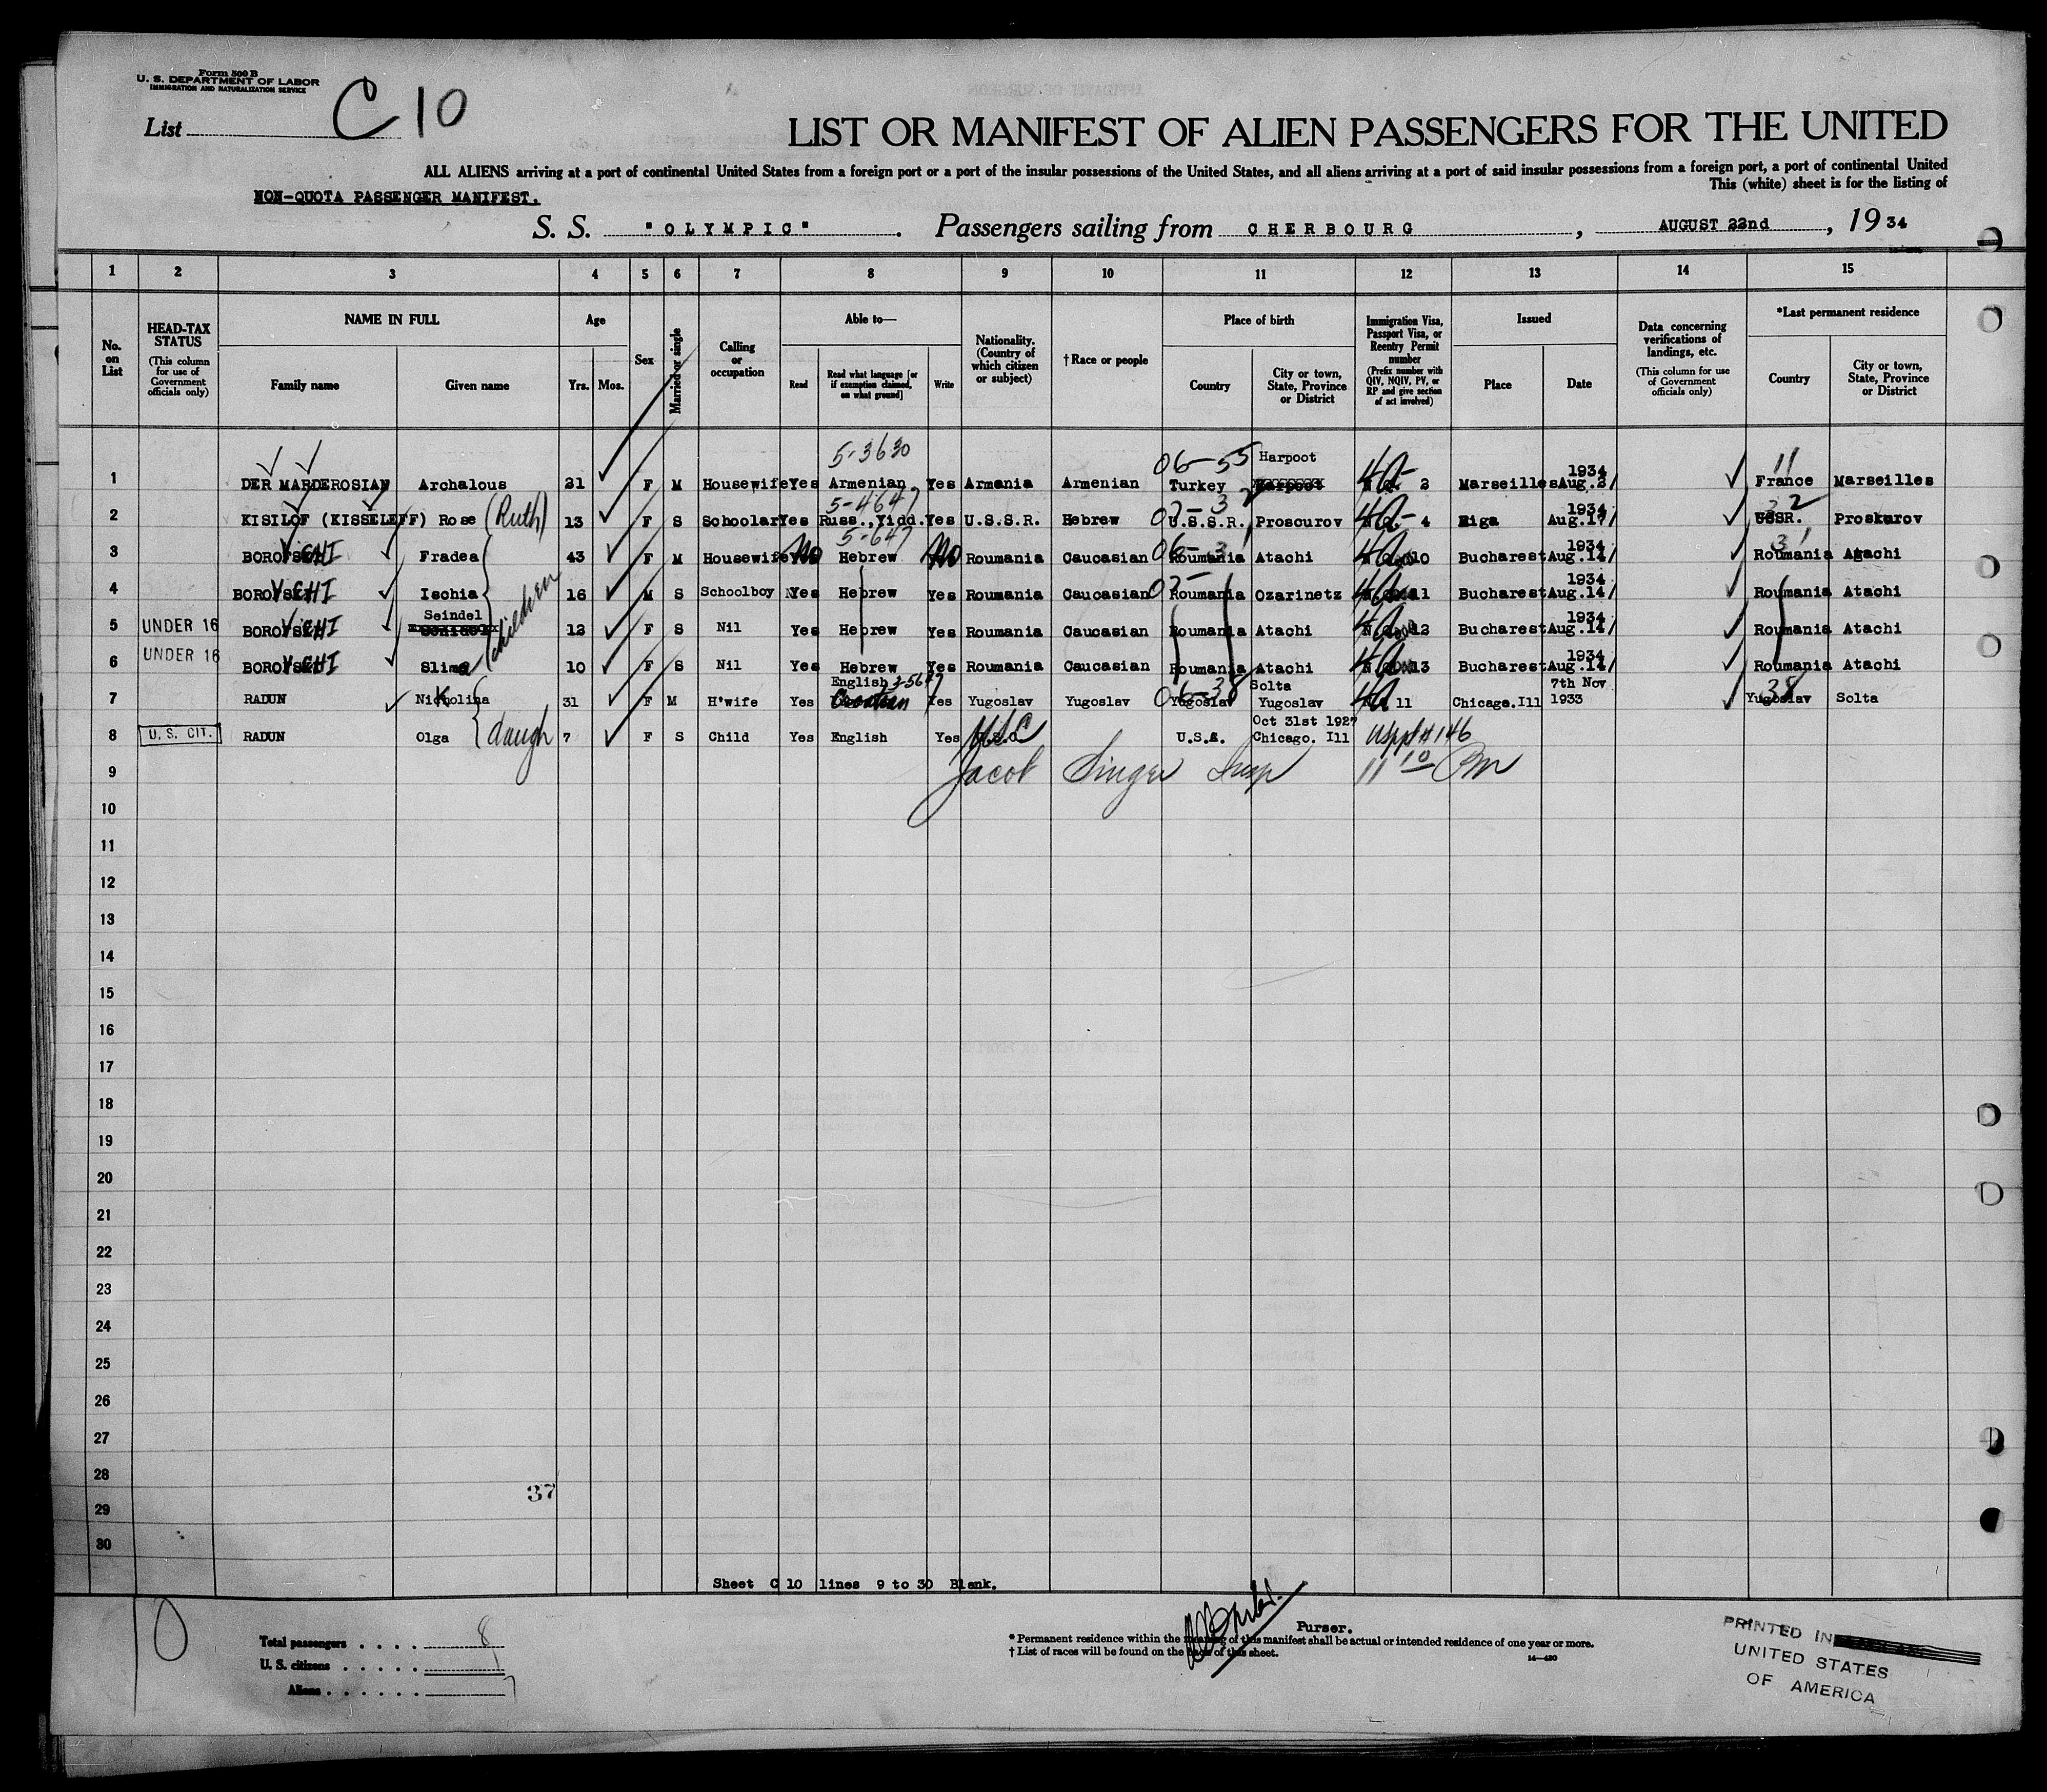 Form 500 B
U. S. DEPARTMENT OF LABOR
IMMIGRATION AND NATURALIZATION SERVICE
List C 10
LIST OR MANIFEST OF ALIEN PASSENGERS FOR THE UNITED
ALL ALIENS arriving at a port of continental United States from a foreign port or a port of the insular possessions of the United States, and all aliens arriving at a port of said insular possessions from a foreign port, a port of continental United
This (white) sheet is for the listing of
NON-QUOTA PASSENGER MANIFEST.
S. S. "OLYMPIC". Passengers sailing from CHERBOURG, AUGUST 22nd, 19 34
1 2 3 4 5 6 7 8 9 10 11 12 13 14 15
No. on List
HEAD-TAX STATUS (This column for use of Government officials only)
NAME IN FULL
Family name
Given name
Age
Yrs. Mos.
Sex
Married or single
Calling or occupation
Able to—
Read
Read what language [or if exemption claimed, on what ground]
Write
Nationality. (Country of which citizen or subject)
†Race or people
Place of birth
Country
City or town, State, Province or District
Immigration Visa, Passport Visa, or Reentry Permit number (Prefix number with QIV, NQIV, PV, or RP and give section of act involved)
Issued
Place
Date
Data concerning verifications of landings, etc. (This column for use of Government officials only)
*Last permanent residence
Country
City or town, State, Province or District
5-3630 06-55 Harpoot 1934 11
1 DER MARDEROSIAN Archalous 21 F M Housewife Yes Armenian Yes Armania Armenian Turkey 4a- 2 Marseilles Aug.2/ France Marseilles
5-464 1934
2 KISILOF (KISSELEFF) Rose (Ruth) 13 F S Schoolar Yes Russ., Yidd. Yes U.S.S.R. Hebrew U.S.S.R. Proscurov 4a- 4 Riga Aug.17/ USSR. Proskurov
5-647 06-31 1934 31
3 BOROVSCHI Fradea 43 F M Housewife No Hebrew No Roumania Caucasian Roumania Atachi 4a 10 Bucharest Aug.14/ Roumania Atachi
1934
4 BOROVSCHI Ischia 16 M S Schoolboy Yes Hebrew Yes Roumania Caucasian Roumania Ozarinetz 4a 11 Bucharest Aug.14/ Roumania Atachi
children
Seindel 1934
5 UNDER 16 BOROVSCHI 12 F S Nil Yes Hebrew Yes Roumania Caucasian Roumania Atachi 4a 12 Bucharest Aug.14/ Roumania Atachi
1934
6 UNDER 16 BOROVSCHI Slima 10 F S Nil Yes Hebrew Yes Roumania Caucasian Roumania Atachi 4a 13 Bucharest Aug.14/ Roumania Atachi
English 06-38 Solta 7th Nov 38
7 RADUN Nikolina 31 F M H'wife Yes Croatian Yes Yugoslav Yugoslav Yugoslav Yugoslav 4a 11 Chicago.Ill 1933 Yugoslav Solta
Oct 31st 1927
8 U. S. CIT. RADUN Olga daugh 7 F S Child Yes English Yes USC U.S.A. Chicago. Ill USppt # 146
9 Jacob Singer Insp 11 10 PM
10
11
12
13
14
15
16
17
18
19
20
21
22
23
24
25
26
27
28
37
29
30
Sheet C 10 lines 9 to 30 Blank.
10
Total passengers . . . . 8
U. S. citizens . . . . . 1
Aliens . . . . . . 7
Purser.
* Permanent residence within the meaning of this manifest shall be actual or intended residence of one year or more.
† List of races will be found on the back of this sheet.
14—430
PRINTED IN
UNITED STATES
OF AMERICA